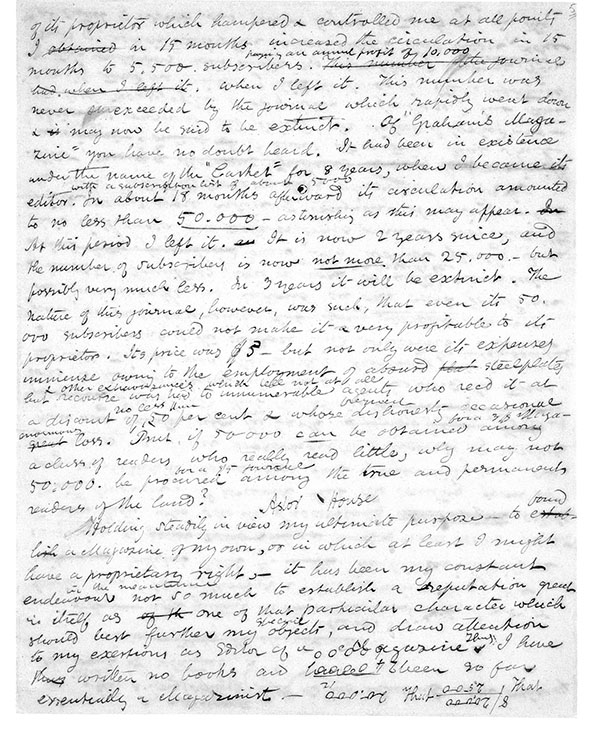 5
of its proprietor which hampered & controlled me at all points
I obtained in 15 months increased the circulation in 15
paying an annual profit of 10,000
months to 5,500 subscribers. This number the journal
had when I left it. when I left it. This number was
never exceeded by the journal which rapidly went down
& it may now be said to be extinct. Of "Graham's Maga-
zine" you have no doubt heard. It had been in existence
under the name of the "Casket" for 8 years, when I became its
with a subscription list of about 5000
editor. In about 18 months afterward its circulation amounted
to no less than 50.000 – astonishing as this may appear. In
At this period I left it. It is now 2 years since, and
the number of subscribers is now not more than 25.000 – but
possibly very much less. In 3 years it will be extinct. The
nature of this journal, however, was such, that even its 50.
000 subscribers could not make it very profitable to its
proprietors. Its price was $3 – but not only were its expenses
immense owing to the employment of absurd steelplates
& other extravagances which tell not at all
but recourse was had to innumerable agents who recd it at
no less than
a discount of 50 per cent & whose frequent dishonesty occasional
enormous for a $3 Maga-
great loss. But, if 50000 can be obtained among
a class of readers who really read little, why may not
for a $5 journal
50,000. be procured among the true and permanent
readers of the land?
Astor House
Holding steadily in view my ultimate purpose – to found
estab-
lish a Magazine of my own, or in which at least I might
have a proprietary right, – it has been my constant
in the meantime
endeavour not so much to establish a reputation great
in itself as of th one of that particular character which
special
should best further my objects, and draw attention
to my exertions as Editor of a Magazine. Thus I have
thus written no books and been so far
essentially a Magazinist. – 20.000 That 20000 That